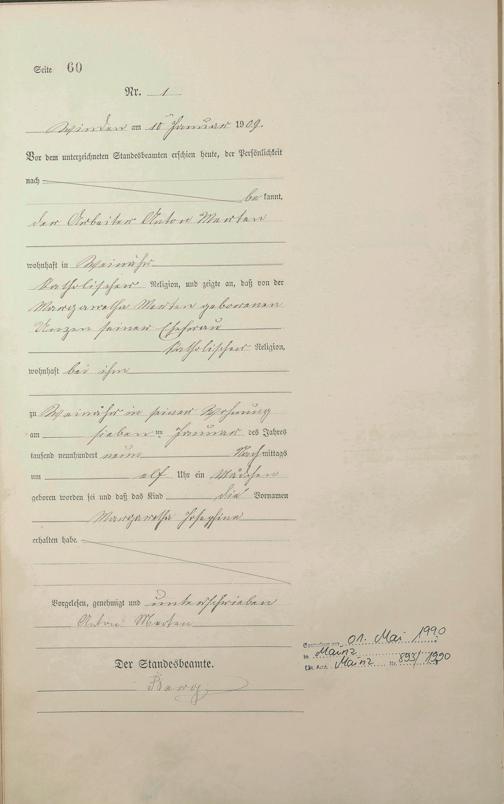 Seite 60
Nr. 1
Winden am 10ten Januar 1909.
Vor dem unterzeichneten Standesbeamten erschien heute, der Persönlichkeit
nach
be kannt,
der Arbeiter Anton Merten
wohnhaft in Weinähr
katholischer Religion, und zeigte an, daß von der
Margaretha Merten geborenen
seiner Ehefrau
katholischer Religion,
wohnhaft bei ihm
zu Weinähr in seiner Wohnung
am sieben ten Januar des Jahres
tausend neunhundert neun Nachmittags
um elf Uhr ein Mädchen
geboren worden sei und daß das Kind die Vornamen
Margaretha Josephine
erhalten habe.
Vorgelesen, genehmigt und unterschrieben
Anton Merten
Der Standesbeamte.
01. Mai 1990
in Mainz
Mainz Nr. 893/1990